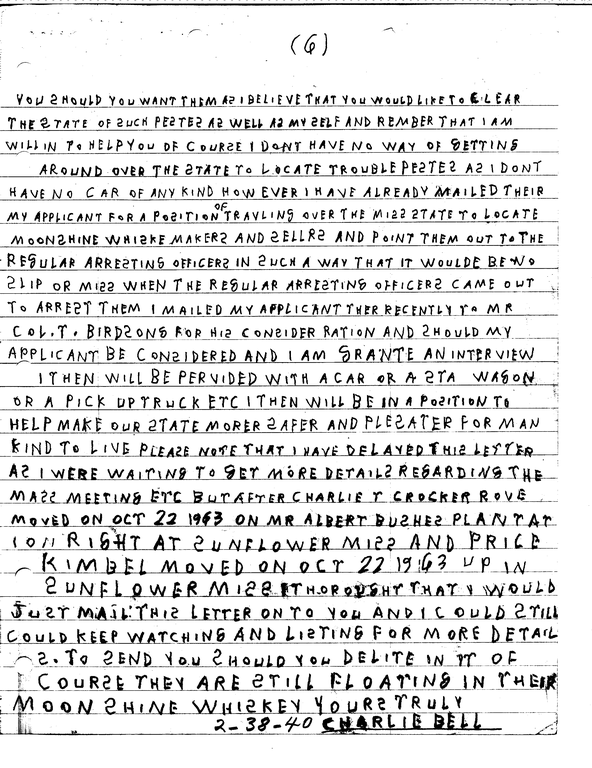 (6)
YOU SHOULD YOU WANT THEM AS I BELIEVE THAT YOU WOULD LIKE TO CLEAR
THE STATE OF SUCH PESTES AS WELL AS MY SELF AND REMBER THAT I AM
WILL IN TO HELP YOU OF COURSE I DONT HAVE NO WAY OF GETTING
AROUND OVER THE STATE TO LOCATE TROUBLE PESTES AS I DONT
HAVE NO CAR OF ANY KIND HOW EVER I HAVE ALREADY MAILED THEIR
MY APPLICANT FOR A POSITION OF TRAVLING OVER THE MISS STATE TO LOCATE
MOONSHINE WHISKE MAKERS AND SELLRS AND POINT THEM OUT TO THE
REGULAR ARRESTING OFFICERS IN SUCH A WAY THAT IT WOULDE BE NO
SLIP OR MISS WHEN THE REGULAR ARRESTING OFFICERS CAME OUT
TO ARREST THEM I MAILED MY APPLICANT THER RECENTLY TO MR
COL.T. BIRDSONG FOR HIS CONSIDER RATION AND SHOULD MY
APPLICANT BE CONSIDERED AND I AM GRANTE AN INTERVIEW
I THEN WILL BE PERVIDED WITH A CAR OR A STA WAGON
OR A PICK UP TRUCK ETC I THEN WILL BE IN A POSITION TO
HELP MAKE OUR STATE MORER SAFER AND PLESATER FOR MAN
KIND TO LIVE PLEASE NOTE THAT I HAVE DELAYED THIS LETTER
AS I WERE WAITING TO GET MORE DETAILS REGARDING THE
MASS MEETING ETC BUT AFTER CHARLIE T CROCKER ROVE
MOVED ON OCT 22 1963 ON MR ALBERT BUSHES PLANT AT
RIGHT AT SUNFLOWER MISS AND PRICE
KIMBEL MOVED ON OCT 22 1963 UP IN
SUNFLOWER MISS I THOROUGHT THAT I WOULD
JUST MAIL THIS LETTER ON TO YOU AND I COULD STILL
COULD KEEP WATCHING AND LISTING FOR MORE DETAIL
S. TO SEND YOU SHOULD YOU DELITE IN IT OF
COURSE THEY ARE STILL FLOATING IN THEIR
MOON SHINE WHISKEY YOURS TRULY
2-38-40 CHARLIE BELL